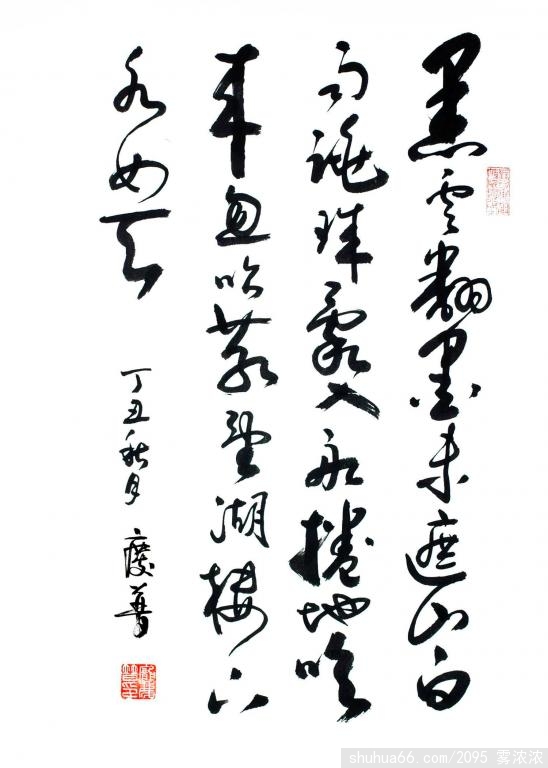 黑雲翻墨未遮山白
雨跳珠亂入船捲地
來忽吹散望湖樓下
水如天
丁丑秋月
shuhua66.com/2095 雾浓浓